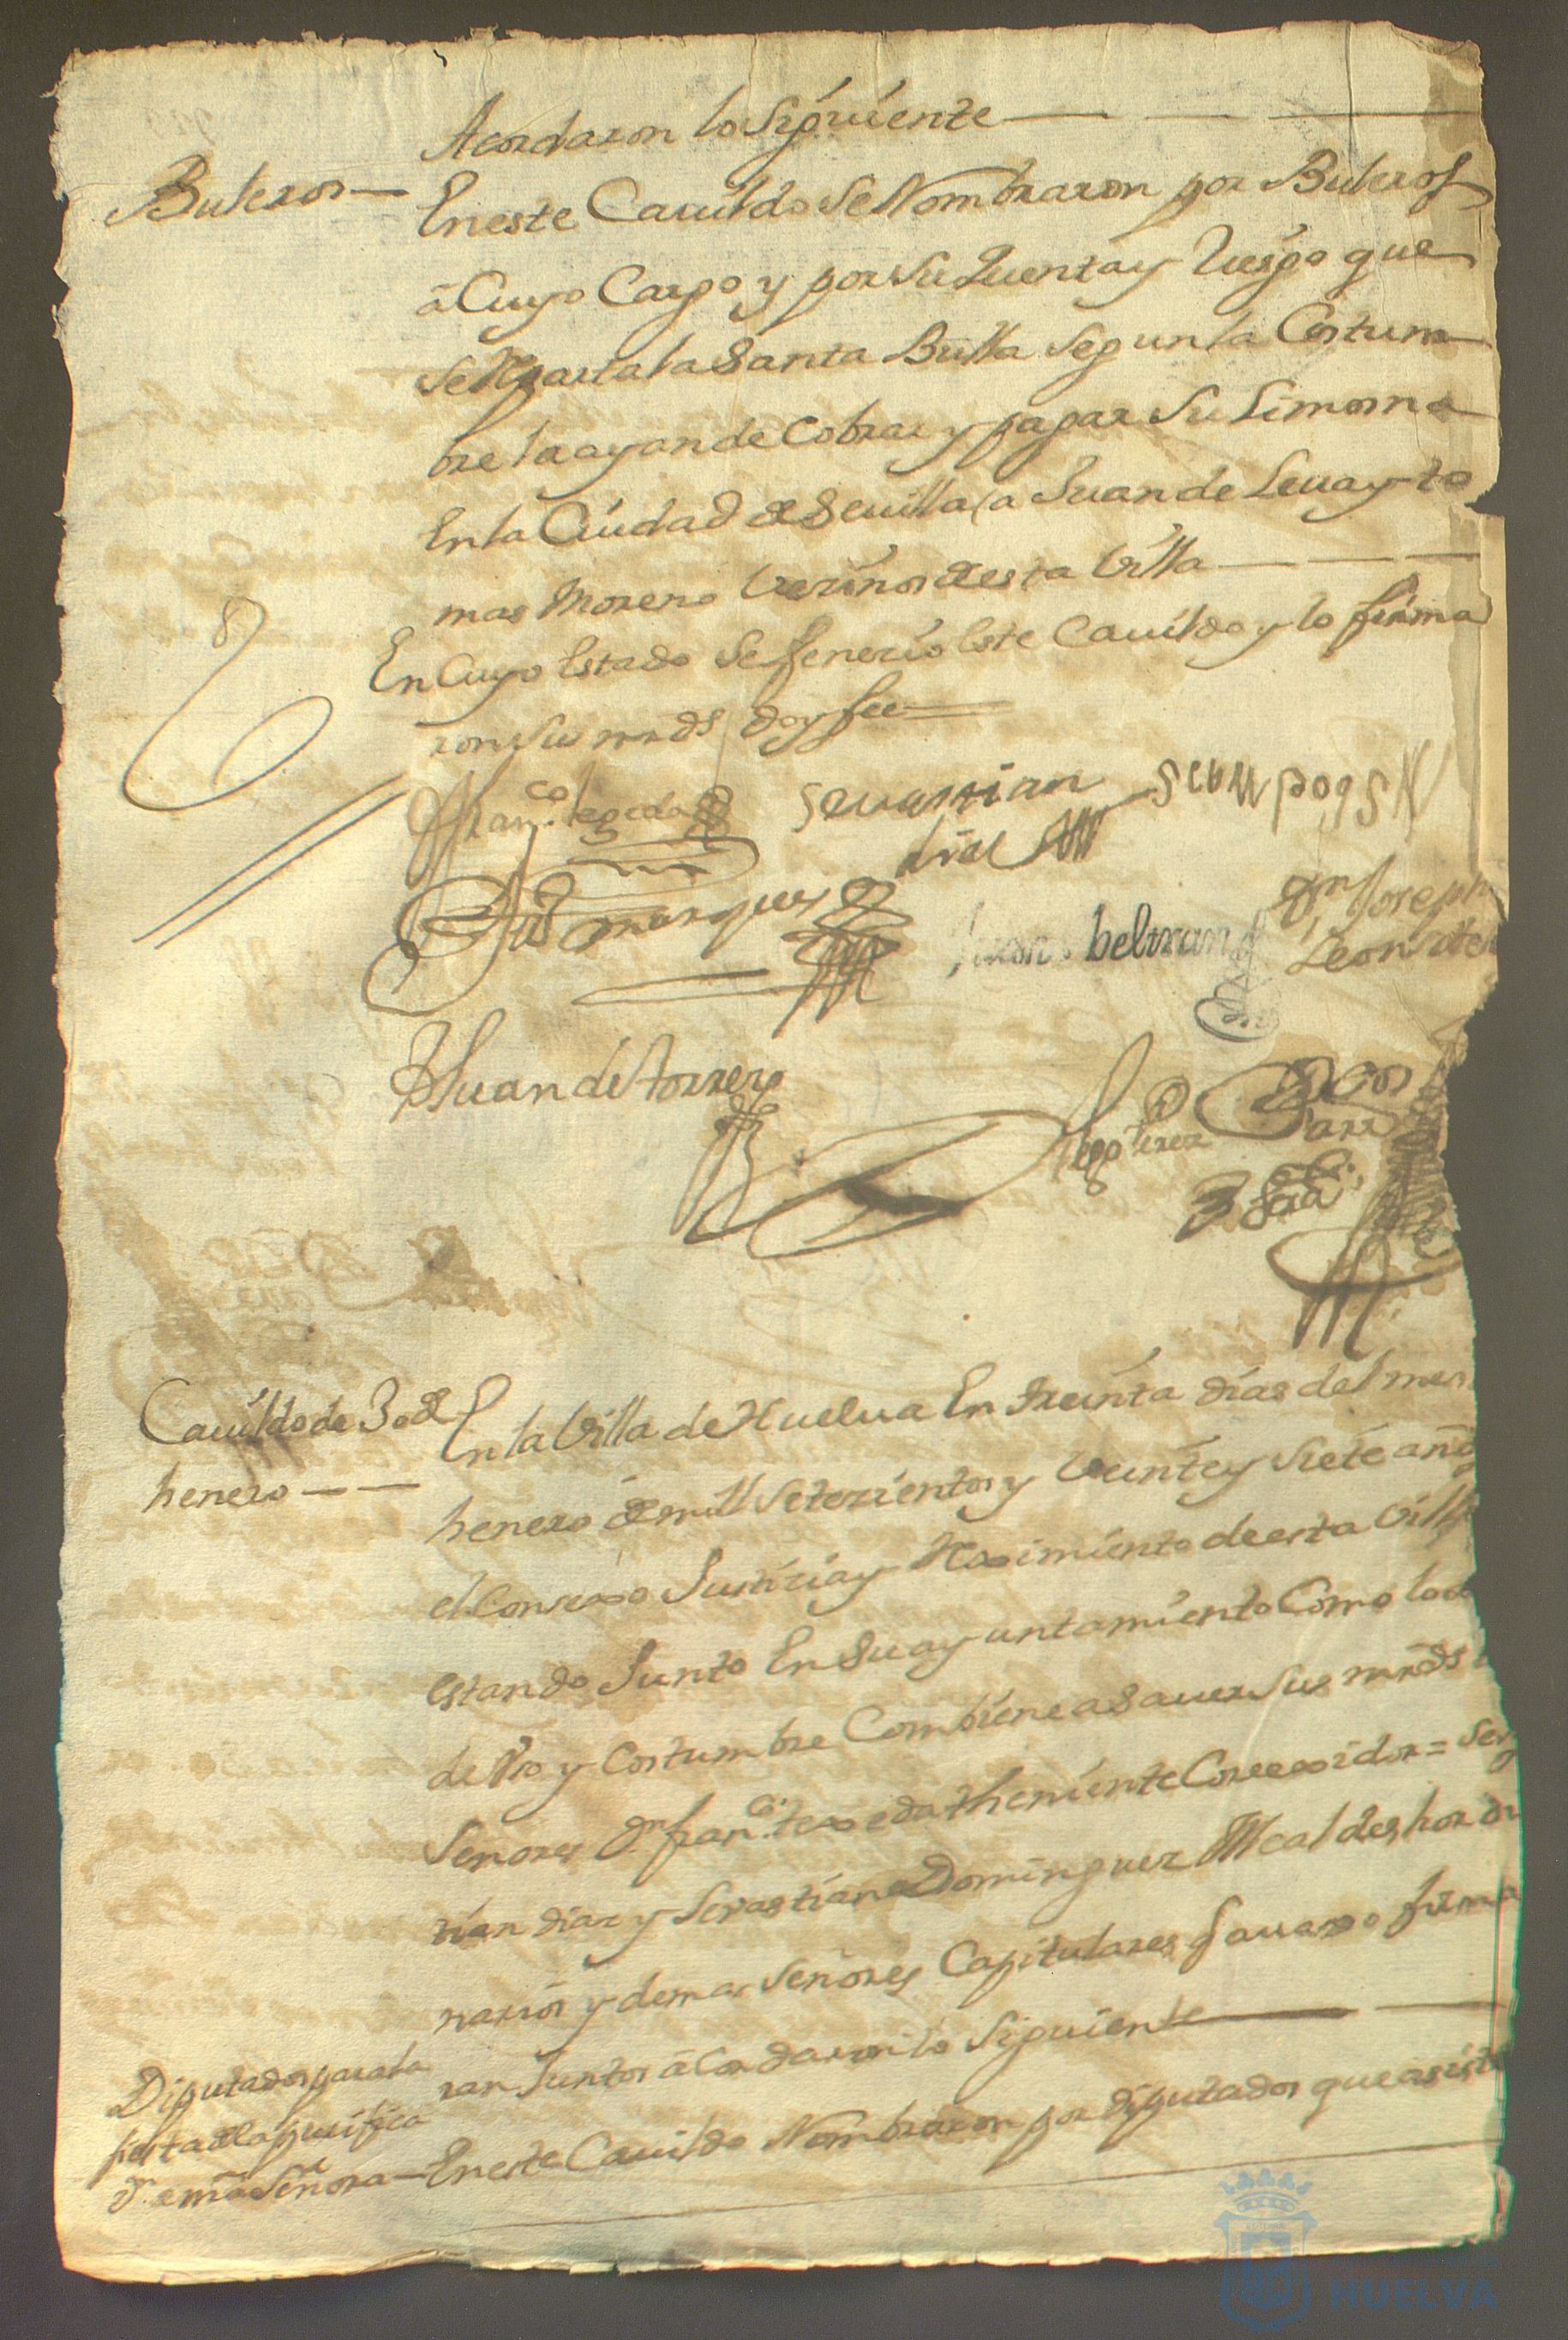 Acordaron lo siguiente
Buleros
En este Cauildo se Nombraron por Buleros
â Cuyo Cargo y por su quenta y riesgo que
se Reparta la Santa Bulla segun la Costum
bre la ayan de Cobrar y pagar su Limosna
En la Ciudad de Seuilla, a Juan de Leua y to
mas Moreno vezinos de esta Villa
En Cuyo Estado se fenezio Este Cauildo y lo firma
ron sus mrds doy fee
Fran.co tegeda
Sevastian
dias
marques
Juan beltran
Dn Joseph
Leon
Juan de torres
Diego Perez
Cauildo de 30 de
henero
En la Villa de Huelua En treinta dias del mes
henero de mill setezientos y veinte y siete años
el Consexo Justizia y Reximiento de esta Villa
estando Junto En su ayuntamiento Como lo a
de Vso y Costumbre Combiene a sauer sus mrds
Señores Dn fran.co texeda theniente Correxidor = Seu
tian diaz y Sevastian Dominguez Alcaldes hordi
narios y demas Señores Capitulares q auaxo firma
ran Juntos âCordaron lo siguiente
Diputados para la
fiesta de la purifica
n de ntra Señora
En este Cauildo Nombraron por diputados que asist
HUELVA